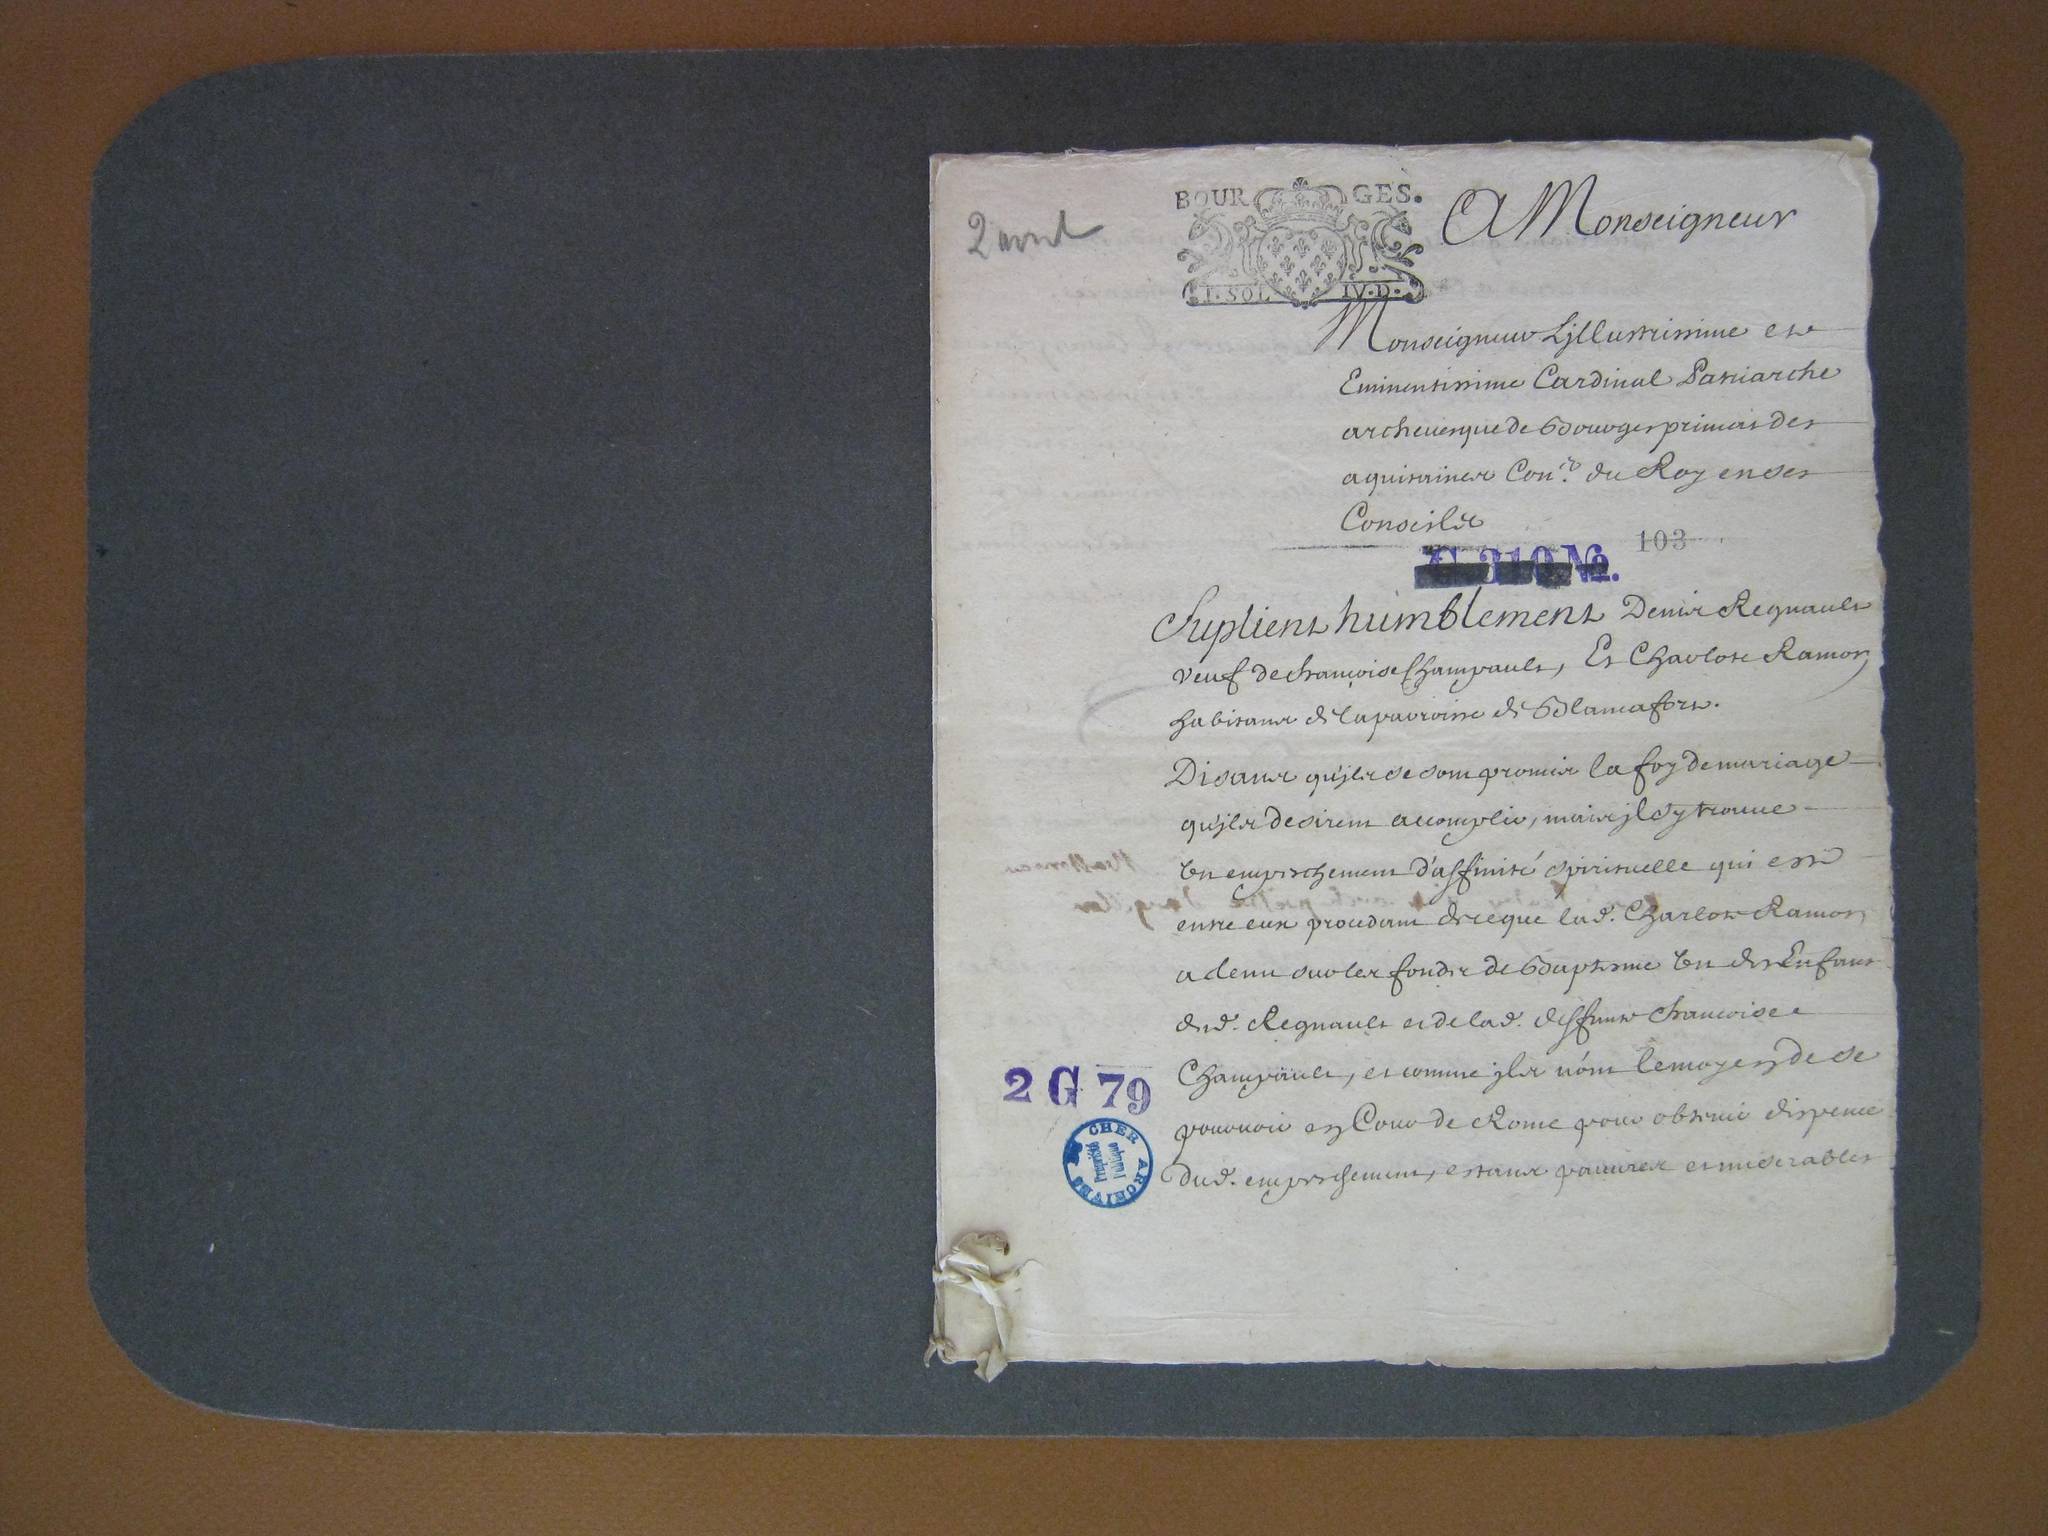 2 avril
BOURGES.
I. SOL IV. D.
A Monseigneur
Monseigneur Lillustrissime et
Eminentissime Cardinal Patriarche
archeuesque de Bourges primat des
aquitaines Con.er du Roy en ses
Conseils
G 310 No.
103
Suplient humblement Denis Regnault
veuf de francoise Champault, Et Charlote Ramon
habitans de la paroisse de Blancafort.
Disans qu'jls se sont promis la foy de mariage
qu'jls desirent accomplir, mais jl sy trouue
un empeschement d'affinité spirituelle qui est
entre eux procedant de ce que lad. Charlote Ramon
a tenu sur les fonds de Baptesme un des Enfans
dud. Regnault et de lad. deffunte francoise
Champault, et comme jls n'ont le moyen de se
pouruoir en Cour de Rome pour obtenir dispence
dud. empeschement, estans pauures et miserables
2 G 79
CHER ARCHIVES
Propriété
Publique